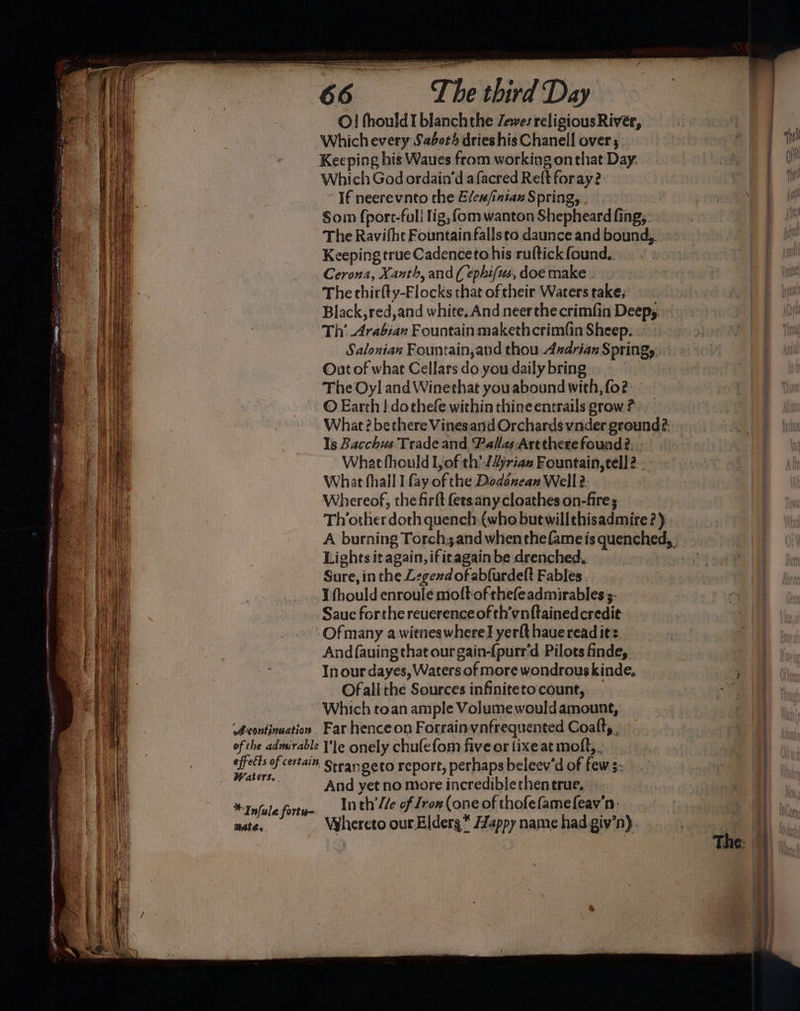 66 The third Day
O! ſhould I blanch the Iewes religious River,
Which every Saboth dries his Chanell over;
Keeping his Waues from working on that Day
Which God ordain'd a ſacred Reſt for ay?
If neere vnto the Eleuſinian Spring,
Som ſport-full Iig, ſom wanton Shepheard ſing,
The Raviſht Fountain falls to daunce and bound,
Keeping true Cadence to his ruſtick ſound.
Cerona, Xanth, and Cephiſus, doe make
The thirſty-Flocks that of their Waters take,
Black, red, and white, And neer the crimſin Deep,
Th' Arabian Fountain maketh crimſin Sheep.
Salonian Fountain, and thou Andrian Spring,
Out of what Cellars do you daily bring
The Oyl and Wine that you abound with, ſo?
O Earth! do theſe within thine entrails grow?
What? be there Vines and Orchards vnder ground?
Is Bacchus Trade and Pallas Art there found?
What ſhould I, of th' Illyrian Fountain, tell?
What ſhall I ſay of the Dodónean Well?
Whereof, the firſt ſets any cloathes on-fire;
Th'other doth quench (who but will this admire?)
A burning Torch; and when the ſame is quenched,
Lights it again, if it again be drenched.
Sure, in the Legend of abſurdeſt Fables
I ſhould enroule moſt of theſe admirables;
Saue for the reuerence of th'vnſtained credit
Of many a witnes where I yerſt haue read it:
And ſauing that our gain-ſpurr'd Pilots finde,
In our dayes, Waters of more wondrous kinde.
Of all the Sources infinite to count,
Which to an ample Volume would amount,
A continuation of the admirable effects of certain Waters.
Far hence on Forrain vnfrequented Coaſt,
I'le onely chuſe ſom five or ſixe at moſt,
Strange to report, perhaps beleev'd of few;
And yet no more incredible then true.
*Inſulæ fortunatæ.
In th'Ile of Iron (one of thoſe ſame ſeav'n
Whereto our Elders * Happy name had giv'n)
The